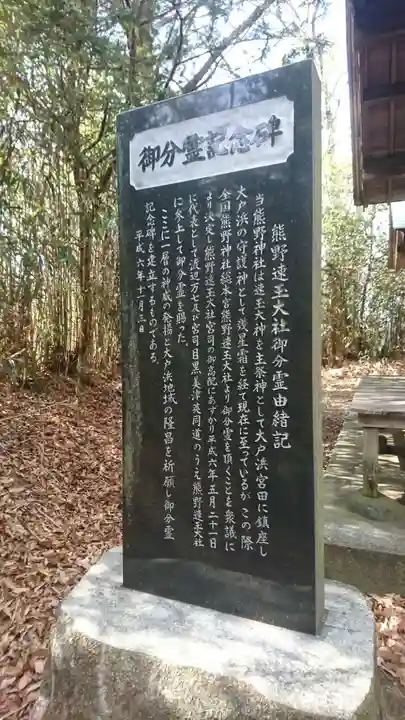 御分霊記念碑
熊野速玉大社御分霊由緒記
当熊野神社は速玉大神を主祭神として大戸浜宮田に鎮座し
大戸浜の守護神として幾星霜を経て現在に至っているがこの際
全国熊野神社総本宮熊野速玉大社より御分霊を頂くことを衆議に
より決定し熊野速玉大社宮司の御高配にあずかり平成六年五月二十一日
に代表として渡辺万七及び宮司目黒美津英同道のうえ熊野速玉大社
に参上して御分霊を賜った
ここに一層の神威の発揚と大戸浜地域の隆昌を祈願し御分霊
記念碑を建立するものである。
平成六年十一月三日